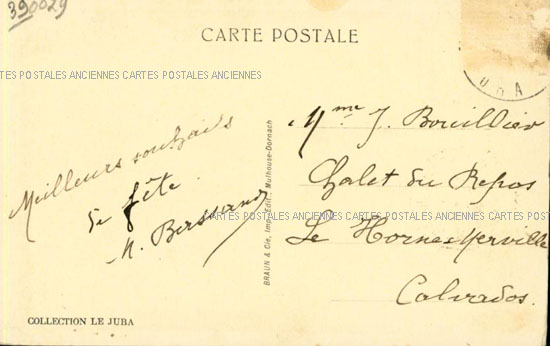 390029
CARTE POSTALE
CARTES POSTALES ANCIENNES CARTES POSTALES ANCIENNES
URA
Meilleurs souhaits
de fête
BRAUN & Cie, Imp.-Édit., Mulhouse-Dornach
Mme J. Bouillier
Chalet du Repos
CARTES POSTALES ANCIENNES CARTES POSTALES ANCIENNES CARTES POSTALES
Le Home Merville
Calvados.
COLLECTION LE JUBA